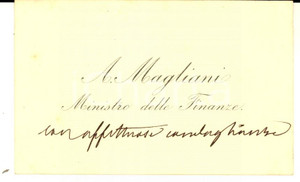 A. Magliani
Ministro delle Finanze
con affettuose condoglianze